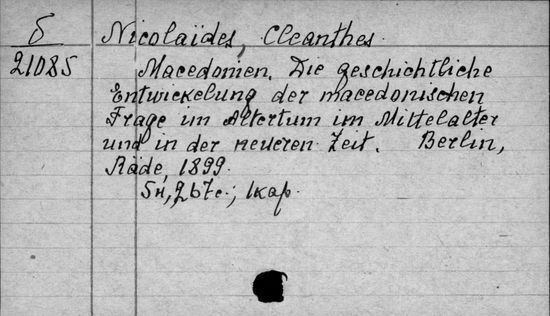 б
21085
Nicolaïdes, Cleanthes.
Macedonien. Die geschichtliche
Entwickelung der macedonischen
Frage im Altertum im Mittelalter
und in der neueren Zeit. Berlin,
Räde, 1899.
267 с.; 1 кар.